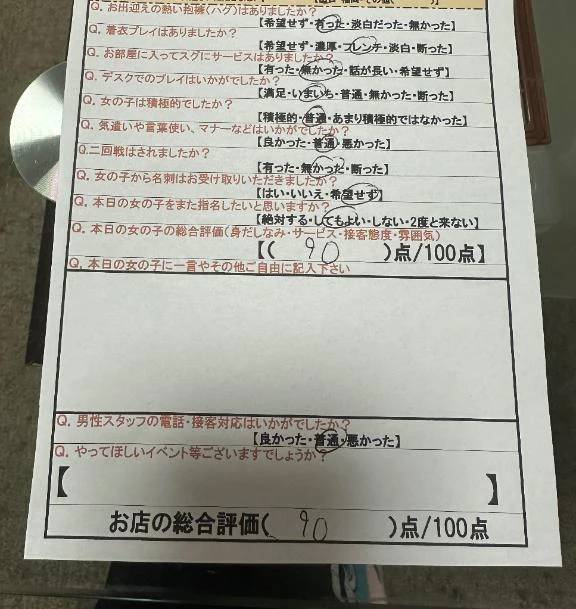 Q. お出迎えの熱い抱擁(ハグ)はありましたか?
【希望せず・有った・淡白だった・無かった】
Q. 着衣プレイはありましたか?
【希望せず・濃厚・フレンチ・淡白・断った】
Q. お部屋に入ってスグにサービスはありましたか?
【有った・無かった・話が長い・希望せず】
Q. デスクでのプレイはいかがでしたか?
【満足・いまいち・普通・無かった・断った】
Q. 女の子は積極的でしたか?
【積極的・普通・あまり積極的ではなかった】
Q. 気遣いや言葉使い、マナーなどはいかがでしたか?
【良かった・普通・悪かった】
Q.二回戦はされましたか?
【有った・無かった・断った】
Q. 女の子から名刺はお受け取りいただきましたか?
【はい・いいえ・希望せず】
Q. 本日の女の子をまた指名したいと思いますか?
【絶対する・してもよい・しない・2度と来ない】
Q. 本日の女の子の総合評価(身だしなみ・サービス・接客態度・雰囲気)
【( 90 )点/100点】
Q. 本日の女の子に一言やその他ご自由に記入下さい
Q. 男性スタッフの電話・接客対応はいかがでしたか?
【良かった・普通・悪かった】
Q. やってほしいイベント等ございますでしょうか?
【 】
お店の総合評価( 90 )点/100点